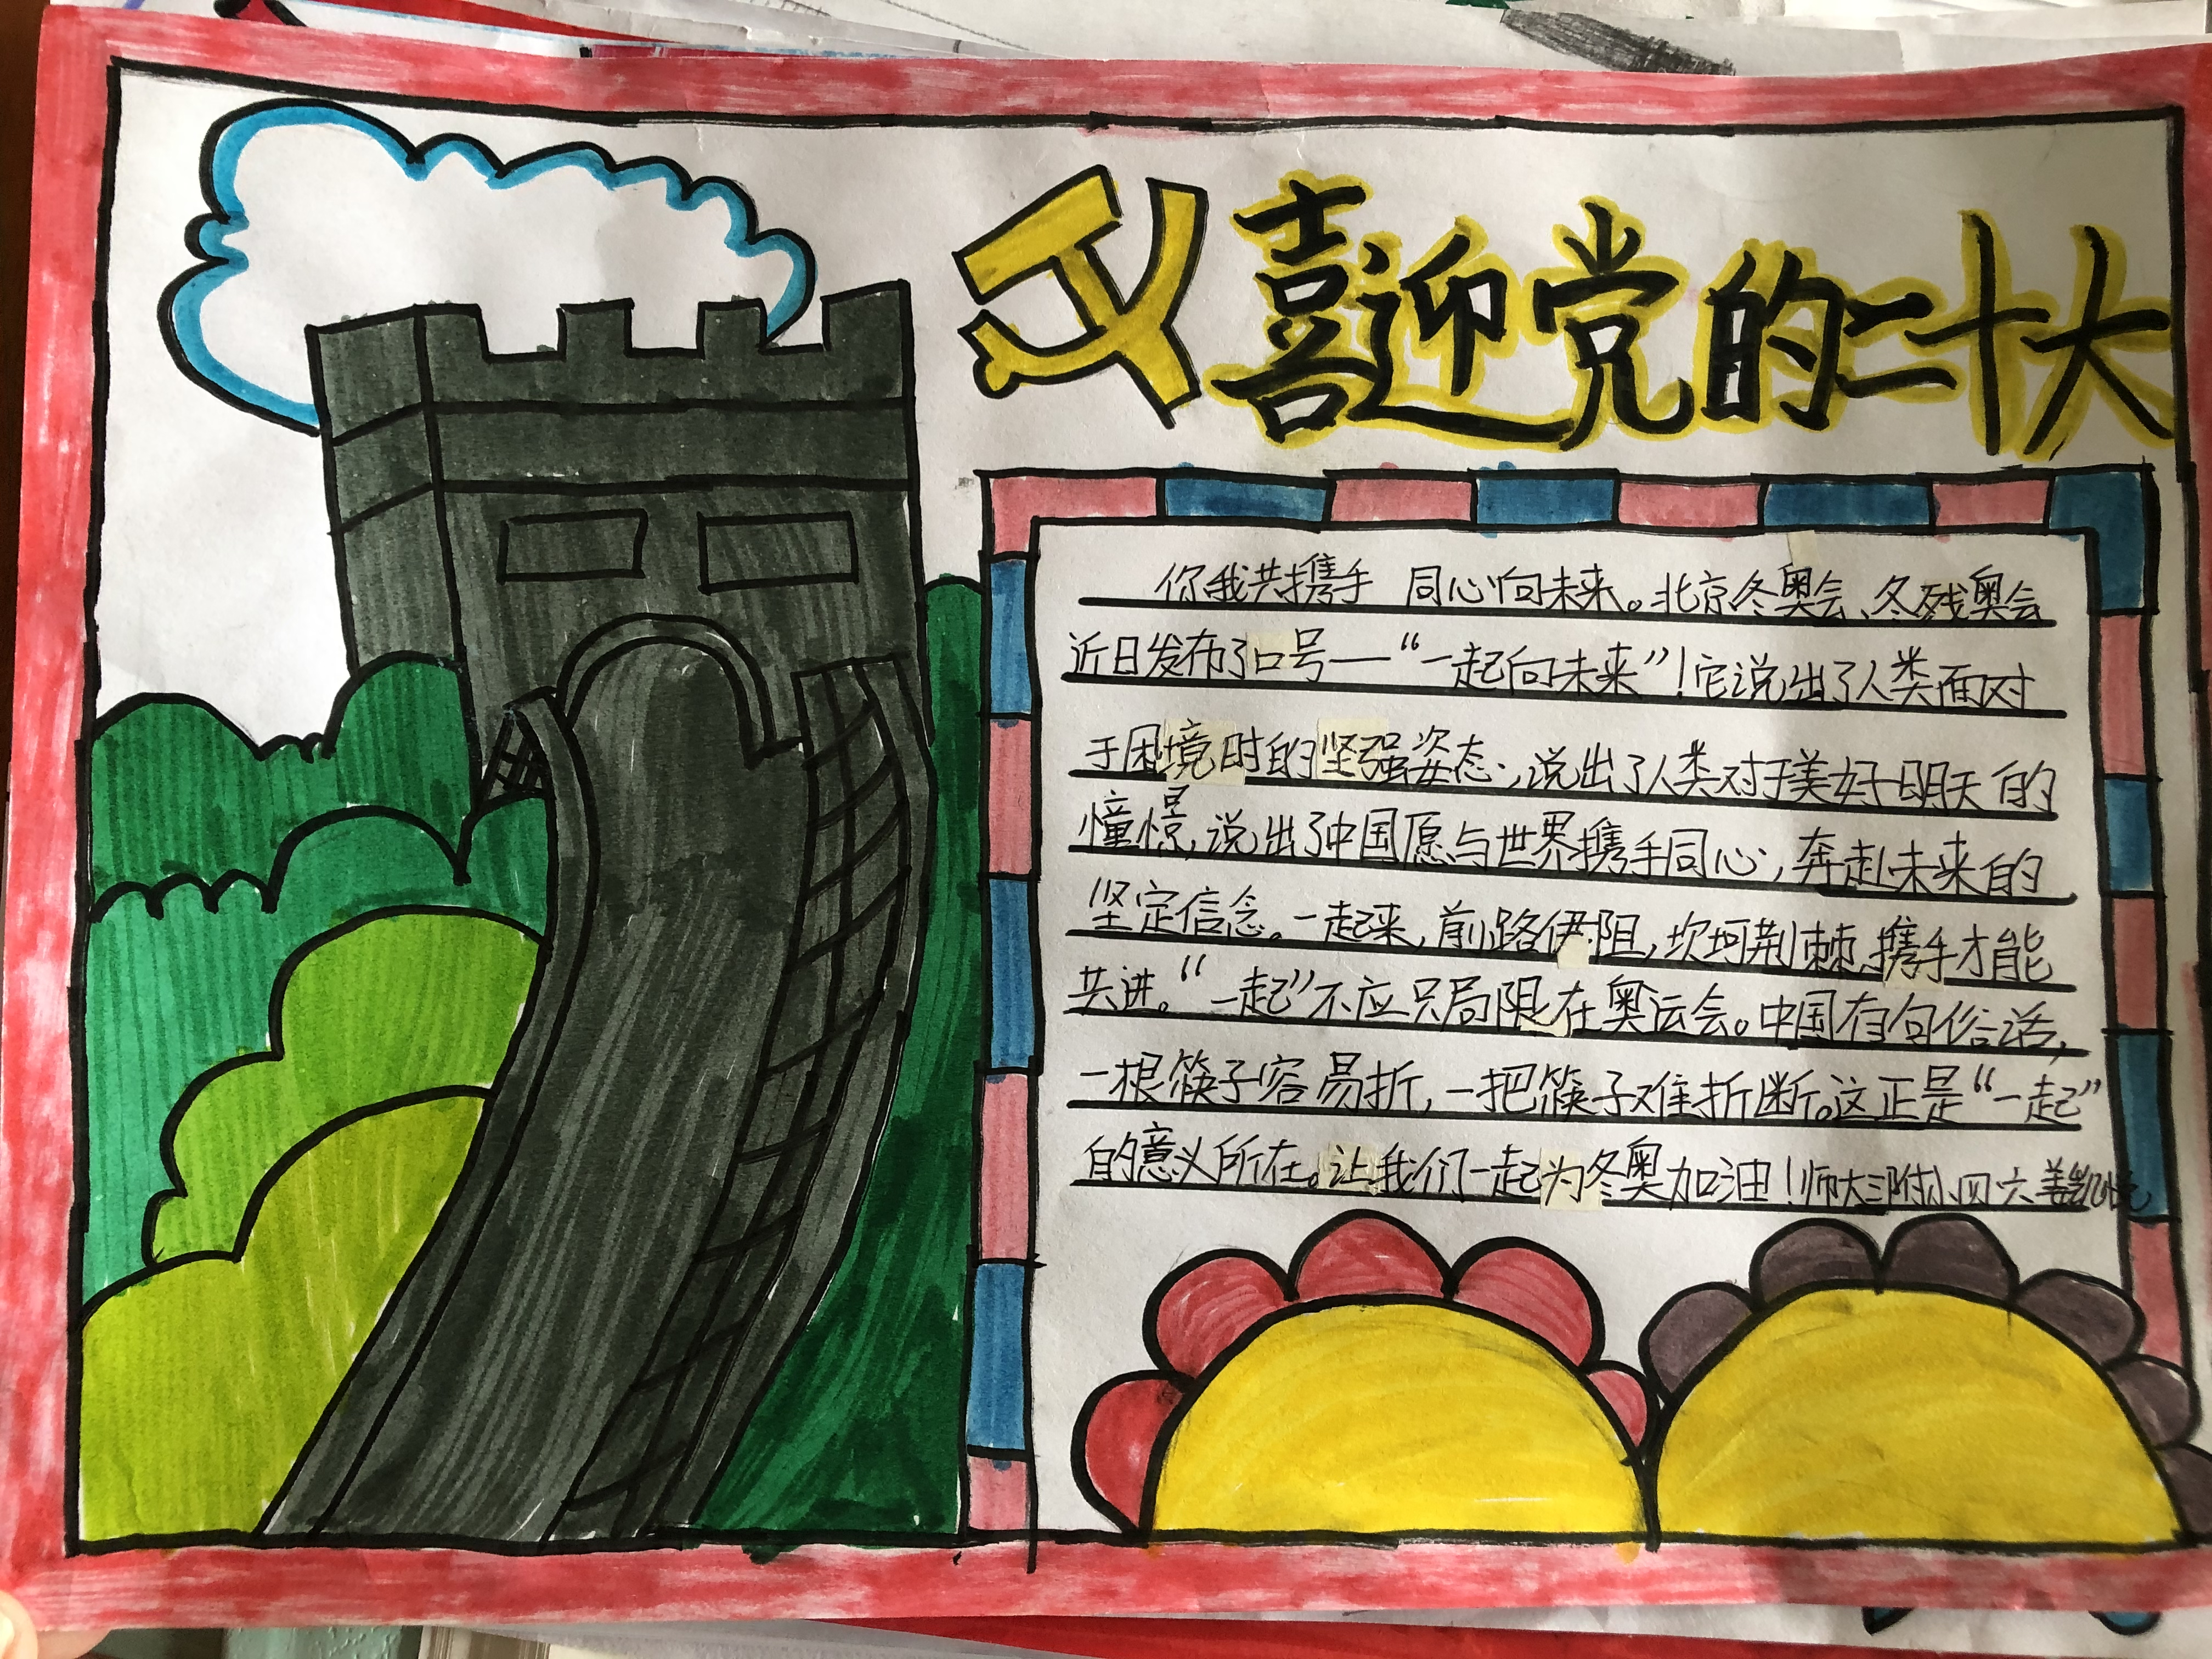 喜迎党的二十大
你我共携手 同心向未来。北京冬奥会、冬残奥会
近日发布了口号——“一起向未来”!它说出了人类面对
于困境时的坚强姿态,说出了人类对于美好明天的
憧憬,说出了中国愿与世界携手同心,奔赴未来的
坚定信念。一起来,前路伊阻,坎坷荆棘,携手才能
共进。“一起”不应只局限在奥运会。中国有句俗话,
一根筷子容易折,一把筷子难折断。这正是“一起”
的意义所在。让我们一起为冬奥加油!师大三附小四六姜